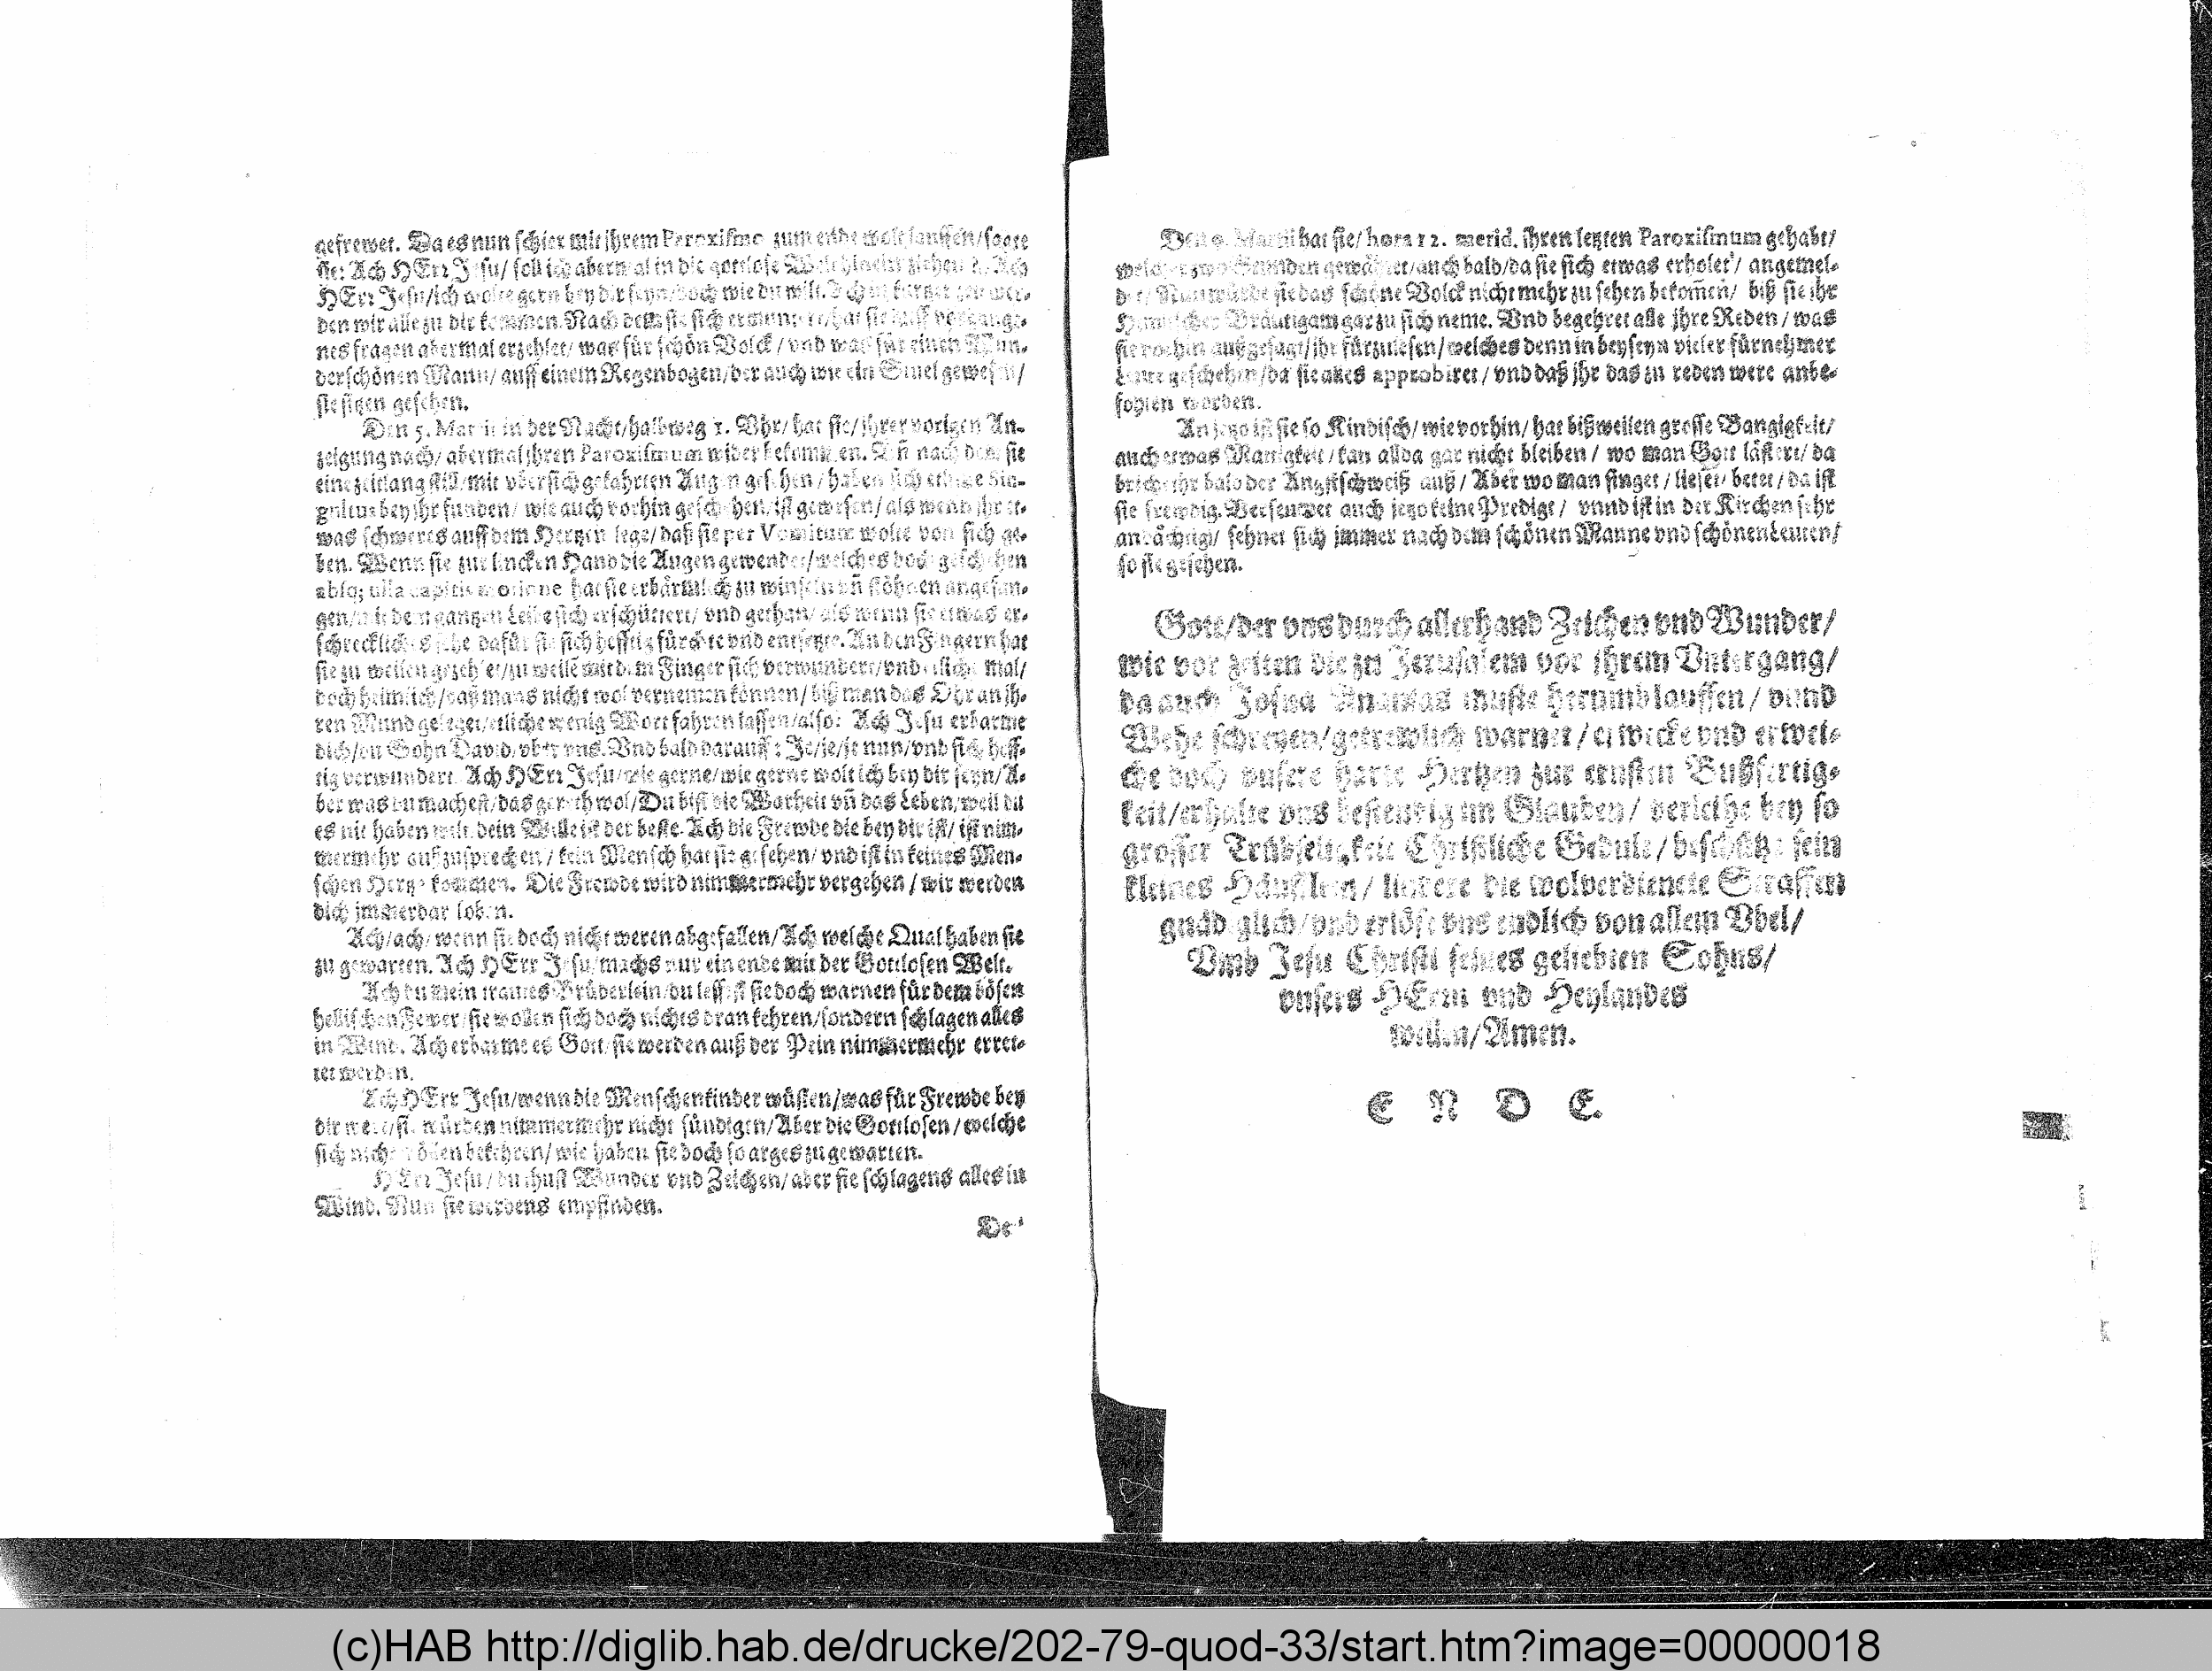 gefrewet. Da es nun schier mit jhrem Paroxismo zum ende wolt lauffen/sagte
sie: Ach HErr Jesu/ soll ich abermal in die gottlose Welt hinein ziehen? Ach
HErr Jesu/ich wolte gern bey dir seyn/doch wie du wilt. kurtzer zeit wer-
den wir alle zu dir kommen. Nach dem sie sich ermuntert/hat sie auff vorgange-
nes fragen abermal erzehlet/ was für schön Volck/ vnd was für einen Wun-
derschönen Mann/ auff einem Regenbogen/der auch wie ein Stuel gewesen/
sie sitzen gesehen.
Den 5. Martii in der Nacht/halbweg 1. Vhr/ hat sie/jhrer vorigen An-
zeigung nach/ abermal jhren Paroxismum wider bekommen. Vñ nach dem sie
eine zeitlang still/mit vbersich gekahrten Augen gesehen/haben sich etliche Sin-
gultus bey jhr funden/ wie auch vorhin geschehen/ist gewesen/als wenn jhr et-
was schweres auff dem Hertzen lege/daß sie per Vomitum wolte von sich ge-
ben. Wenn sie zur lincken Hand die Augen gewendet/welches doch geschehen
absq; ulla capitis motione hat sie erbärmlich zu winseln vñ stöhnen angefan-
gen/mit dem gantzen Leibe sich erschüttert/ vnd gethan/als wenn sie etwas er-
schreckliches sehe dafür sie sich hefftig fürchte vnd entsetzte. An den Fingern hat
sie zu weilen gezehlet/zu weilē mit dem Finger sich verwundert/vnd etliche mal/
doch heimlich/daß mans nicht wol vernemen können/biß man das Ohr an jh-
ren Mund geleget/etliche wenig Wort fahren lassen/also: Ach Jesu erbarme
dich/du Sohn David/vber vns. Vnd bald darauff: Je/je/je nun/vnd sich heff-
tig verwundert. Ach HErr Jesu/wie gerne/wie gerne wolt ich bey dir seyn/A-
ber was du machest/das gereth wol/Du bist die Warheit vñ das Leben/weil du
es nit haben wilt. dein Wille ist der beste. Ach die Frewde die bey dir ist/ ist nim-
mermehr außzusprechen/ kein Mensch hat sie gesehen/ vnd ist in keines Men-
schen Hertze kommen. Die Frewde wird nimmermehr vergehen/ wir werden
dich jmmerdar loben.
Ach/ach/ wenn sie doch nicht weren abgefallen/Ach welche Qual haben sie
zu gewarten. Ach HErr Jesu/machs nur ein ende mit der Gottlosen Welt.
Ach du mein trautes Brüderlein/du lessest sie doch warnen für dem bösen
hellischen Fewer/sie wollen sich doch nichts dran kehren/sondern schlagen alles
in Wind. Ach erbarme es Gott/sie werden auß der Pein nimmermehr erret-
tet werden.
Ach HErr Jesu/wenn die Menschenkinder wüsten/was für Frewde bey
dir were/sie würden nimmermehr nicht sündigen/Aber die Gottlosen/welche
sich nicht wöllen bekehren/wie haben sie doch so arges zugewarten.
HErr Jesu/du thust Wunder vnd Zeichen/aber sie schlagens alles in
Wind. Nun sie werdens empfinden.
Den 9. Martii hat sie/ hora 12. merid. jhren letzten Paroxismum gehabt/
welcher zwo Stunden gewähret/auch bald/da sie sich etwas erholet/ angemel-
det/ Nun würde sie das schöne Volck nicht mehr zu sehen bekom̃en/ biß sie jhr
Himlischer Bräutigam gar zu sich neme. Vnd begehret alle jhre Reden/ was
sie vorhin außgesagt/jhr fürzulesen/welches denn in beyseyn vieler fürnehmer
Leute geschehen/da sie alles approbiret/vnd daß jhr das zu reden were anbe-
fohlen worden.
An jetzo ist sie so Kindisch/wie vorhin/ hat bißweilen grosse Bangigkeit/
auch etwas Mattigkeit/kan allda gar nicht bleiben/ wo man Gott lästert/ da
bricht jhr bald der Angstschweiß auß/ Aber wo man singet/lieset/ betet/da ist
sie frewdig. Verseumet auch jetzo keine Predigt/ vnnd ist in der Kirchen sehr
andächtig/ sehnet sich jmmer nach dem schönen Manne vnd schönen Leuten/
so sie gesehen.
Gott/der vns durch allerhand Zeichen vnd Wunder/
wie vor zeiten die zu Jerusalem vor jhrem Vntergang/
da auch Josua Ananias muste herumb lauffen/ vnnd
Wehe schreyen/getrewlich warnet/erwecke vnd erwei-
che doch vnsere harte Hertzen zur ernsten Bußfertig-
keit/erhalte vns bestendig im Glauben/ verleihe bey so
grosser Trübseligkeit Christliche Gedult/beschütze sein
kleines Häufflein/ lindere die wolverdienete Straffen
gnädiglich/vnd erlöse vns endlich von allem Vbel/
Vmb Jesu Christi seines geliebten Sohns/
vnsers HErrn vnd Heylandes
willen/Amen.
E N D E.
(c)HAB http://diglib.hab.de/drucke/202-79-quod-33/start.htm?image=00000018